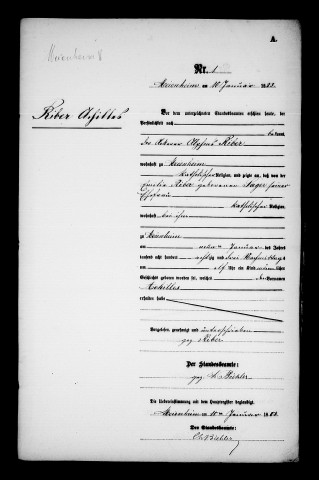 A.
Nr. 1
Meienheim am 10 Januar 1883.
Riber Achilles
Vor dem unterzeichneten Standesbeamten erschien heute, der
Persönlichkeit nach
bekannt,
der Ackerer Riber
wohnhaft zu Meienheim
katholischer Religion, und zeigte an, daß von der
Emilie Riber geborenen seiner
Ehefrau
katholischer Religion,
wohnhaft bei ihm
zu Meienheim
am Januar des Jahres
tausend acht hundert achtzig und drei Vormittags
um Uhr ein Kind männlichen
Geschlechts geboren worden sei, welches den Vornamen
Achilles
erhalten habe
Vorgelesen, genehmigt und unterschrieben
gez. Riber
Der Standesbeamte:
gez.
Die Uebereinstimmung mit dem Hauptregister beglaubigt.
Meienheim am 10 Januar 1883.
Der Standesbeamte: